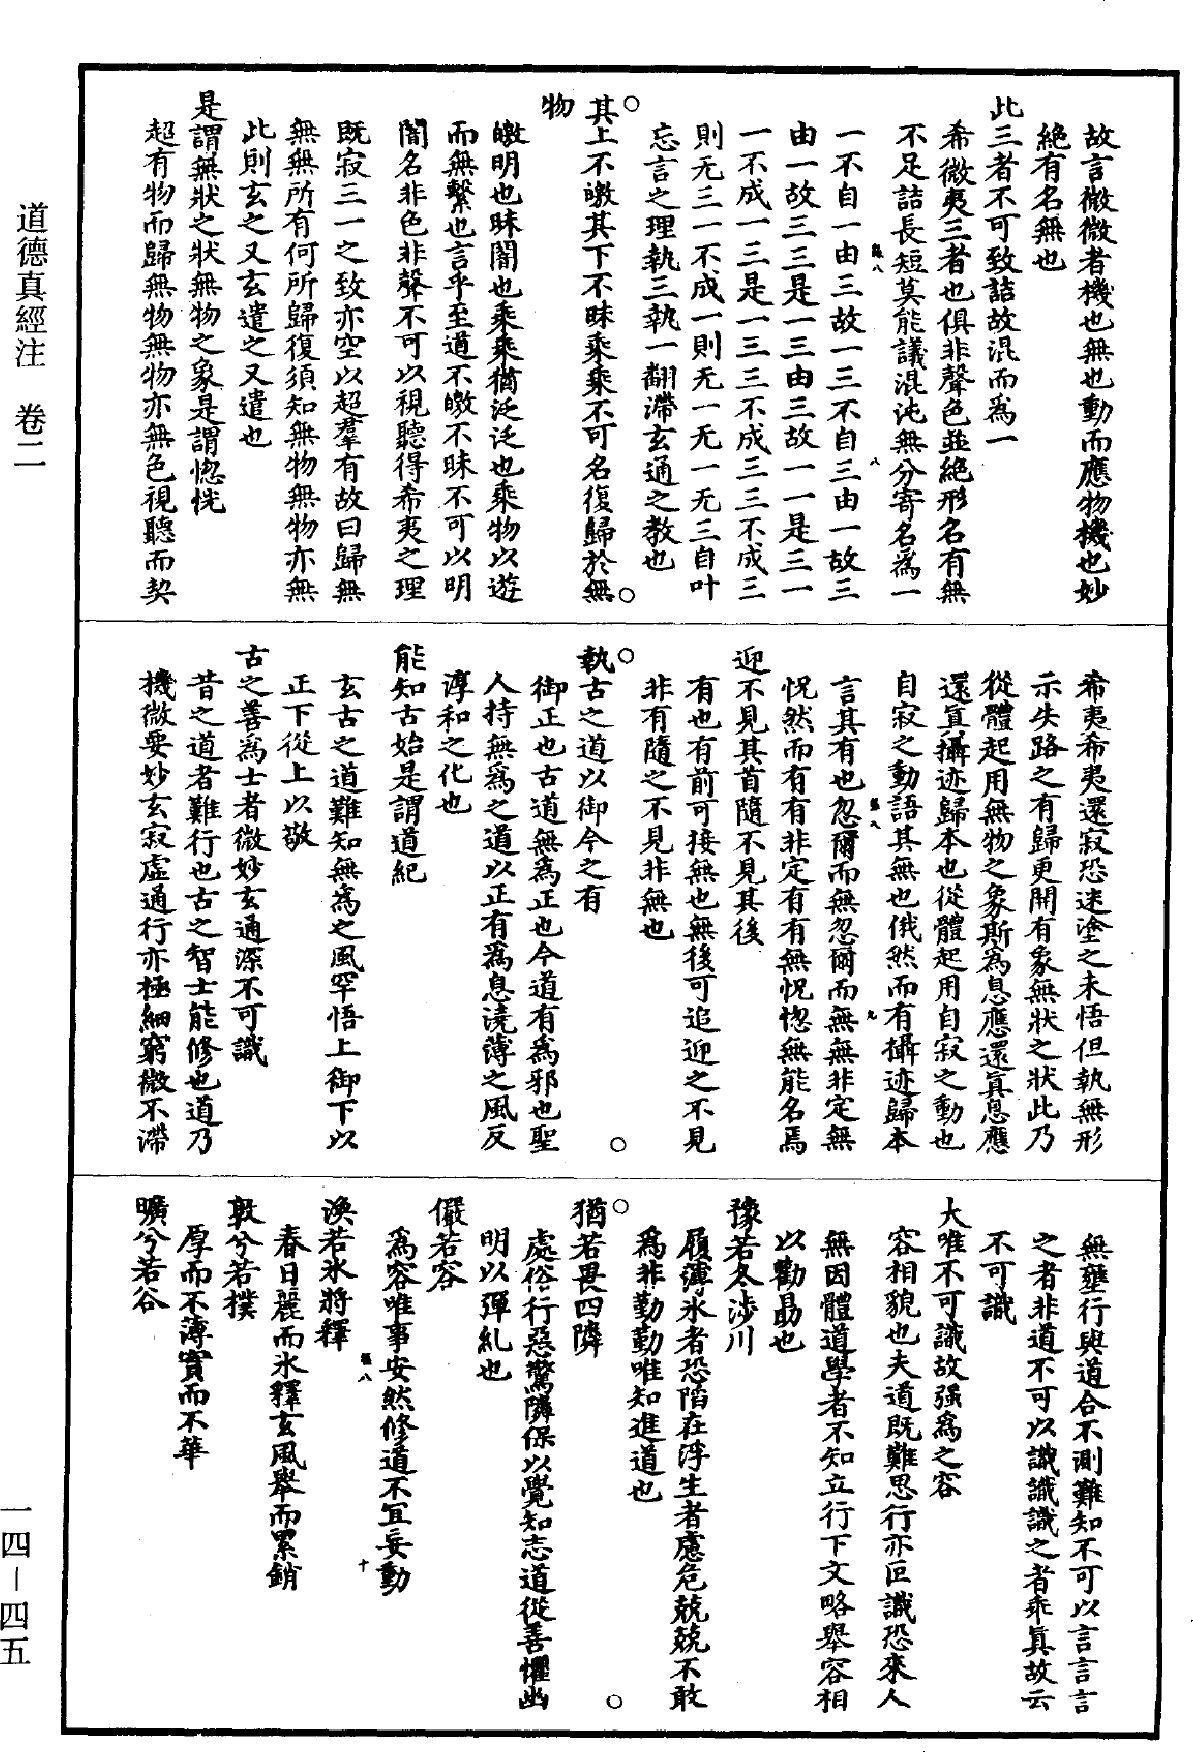 故言微微者機也無也動而應物機也妙
絶有名無也
此三者不可致詰故混而爲一
希微夷三者也俱非聲色並絶形名有無
不足詰長短莫能議混沌無分寄名爲一
一不自一由三故一三不自三由一故三
由一故三三是一三由三故一一是三一
一不成一三是一三三不成三三不成三
則无三一不成一則无一无一无三自叶
忘言之理執三執一翻滯玄通之教也
其上不皦其下不昧乘乘不可名復歸於無
物
皦明也昧闇也乘乘猶泛泛也乘物以遊
而無繫也言乎至道不皦不昧不可以明
闇名非色非聲不可以視聽得希夷之理
既寂三一之致亦空以超羣有故曰歸無
無無所有何所歸復須知無物無物亦無
此則玄之又玄遣之又遣也
是謂無狀之狀無物之象是謂惚恍
超有物而歸無物無物亦無色視聽而契
希夷希夷還寂恐迷塗之未悟但執無形
示失路之有歸更開有象無狀之狀此乃
從體起用無物之象斯爲息應還真息應
還真攝迹歸本也從體起用自寂之動也
自寂之動語其無也俄然而有攝迹歸本
言其有也忽爾而無忽爾而無無非定無
怳然而有有非定有有無怳惚無能名焉
迎不見其首隨不見其後
有也有前可接無也無後可追迎之不見
非有隨之不見非無也
執古之道以御今之有
御正也古道無爲正也今道有爲邪也聖
人持無爲之道以正有爲息澆薄之風反
淳和之化也
能知古始是謂道紀
玄古之道難知無爲之風罕悟上御下以
正下從上以敬
古之善爲士者微妙玄通深不可識
昔之道者難行也古之智士能修也道乃
機微要妙玄寂虛通行亦極細窮微不滯
無壅行與道合不測難知不可以言言言
之者非道不可以識識識之者乖真故云
不可識
大唯不可識故强爲之容
容相貌也夫道既難思行亦叵識恐來人
無因體道學者不知立行下文略舉容相
以勸勗也
豫若冬涉川
履薄氷者恐陷在浮生者慮危兢兢不敢
爲非勤勤唯知進道也
猶若畏四隣
處俗行惡驚隣保以覺知志道從善懼幽
明以彈糺也
儼若容
爲容唯事安然修道不宜妄動
渙若氷將釋
春日麗而氷釋玄風舉而累銷
敦兮若樸
厚而不薄實而不華
曠兮若谷
道德真經注　卷二
一四—四五